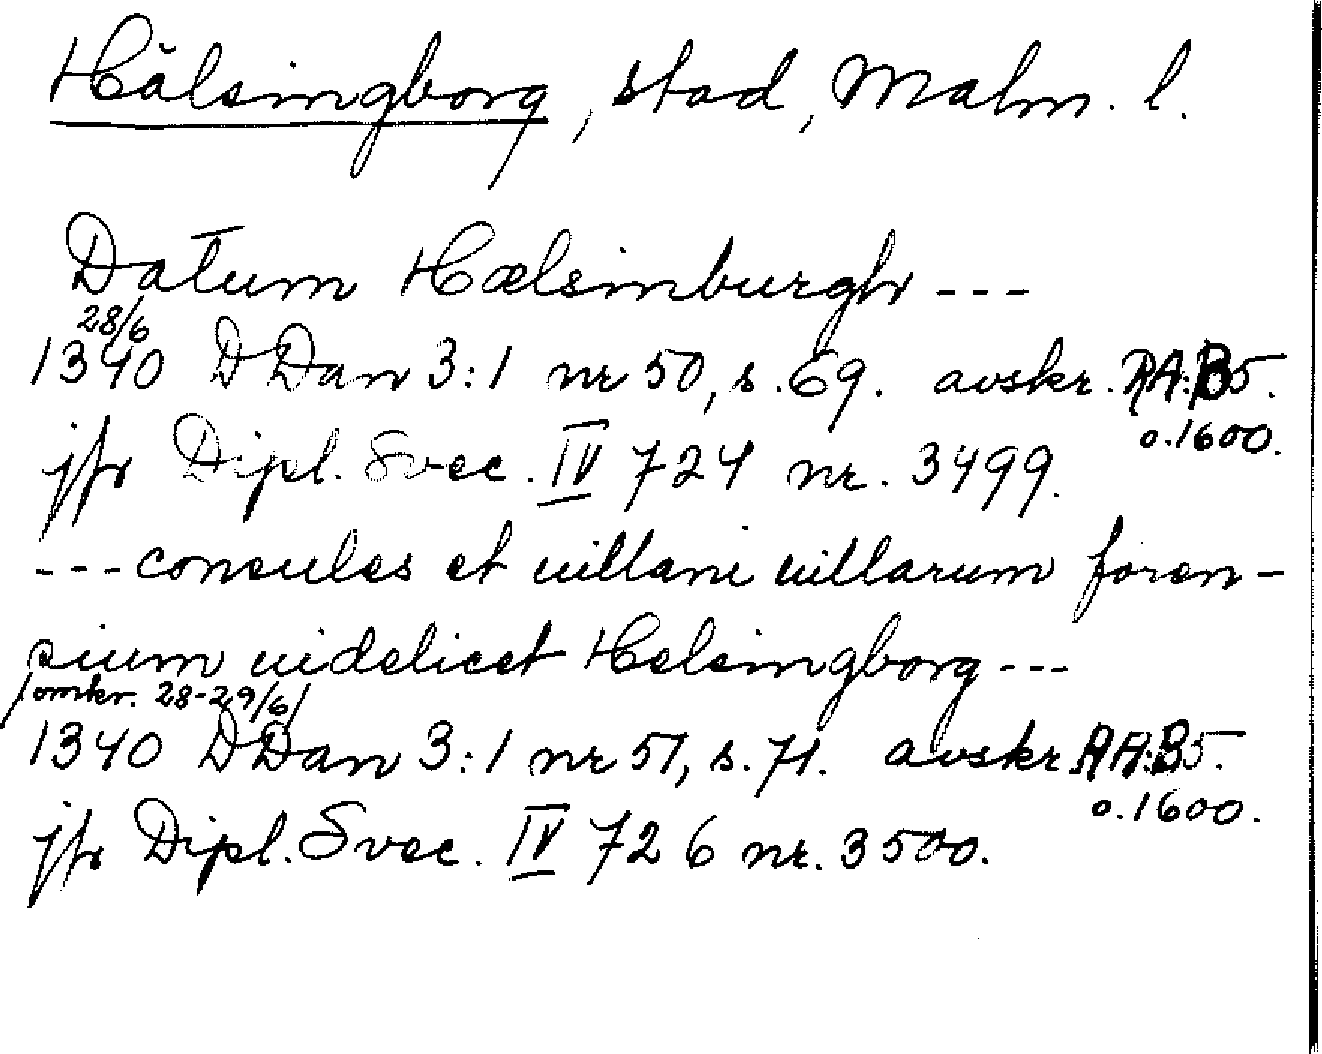 Hälsingborg, stad, Malm. l.
Datum Hælsinburgh ---
28/6
1340 DDan 3:1 nr 50, s. 69. avskr. RA:B5.
o. 1600.
jfr Dipl. Svec. IV 724 nr. 3499.
--- consules et uillani uillarum foren-
sium uidelicet Helsingborg ---
/omkr. 28-29/6/
1340 DDan 3:1 nr 51, s. 71. avskr RA:B5.
o. 1600.
jfr Dipl. Svec. IV 726 nr. 3500.